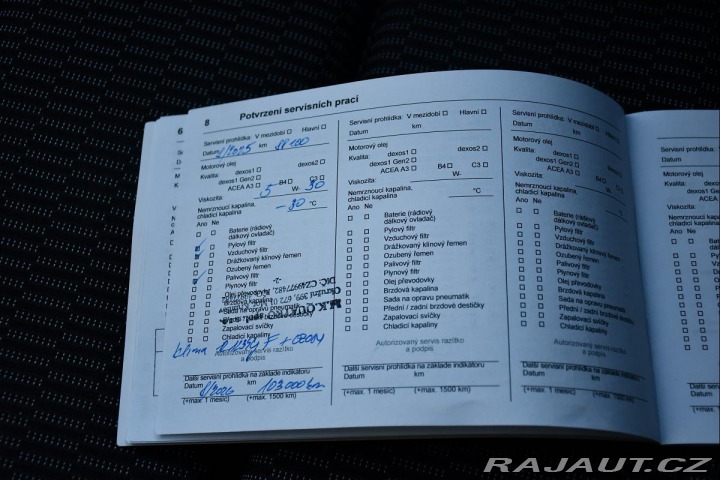 8 Potvrzení servisních prací
Servisní prohlídka: V mezidobí Hlavní
Datum km
Motorový olej
Kvalita: dexos1 dexos2
dexos1 Gen2
ACEA A3 B4 C3
Viskozita: 5 W- 30
Nemrznoucí kapalina,
chladicí kapalina -30 °C
Ano Ne
Baterie (rádiový
dálkový ovladač)
Pylový filtr
Vzduchový filtr
Drážkovaný klínový řemen
Ozubený řemen
Palivový filtr
Plynový filtr
Olej převodovky
Brzdová kapalina
Sada na opravu pneumatik
Zapalovací svíčky
Chladicí kapaliny
klima
Autorizovaný servis razítko
a podpis
Další servisní prohlídka na základě indikátoru
Datum km
103 000 km
(+max. 1 měsíc) (+max. 1500 km)
Servisní prohlídka: V mezidobí Hlavní
Datum km
Motorový olej
Kvalita: dexos1 dexos2
dexos1 Gen2
ACEA A3 B4 C3
Viskozita: W-
Nemrznoucí kapalina,
chladicí kapalina °C
Ano Ne
Baterie (rádiový
dálkový ovladač)
Pylový filtr
Vzduchový filtr
Drážkovaný klínový řemen
Ozubený řemen
Palivový filtr
Plynový filtr
Olej převodovky
Brzdová kapalina
Sada na opravu pneumatik
Přední / zadní brzdové destičky
Zapalovací svíčky
Chladicí kapaliny
Autorizovaný servis razítko
a podpis
Další servisní prohlídka na základě indikátoru
Datum km
(+max. 1 měsíc) (+max. 1500 km)
Servisní prohlídka: V mezidobí Hlavní
Datum km
Motorový olej
Kvalita: dexos1 dexos2
dexos1 Gen2
ACEA A3 B4 C3
Viskozita: W-
Nemrznoucí kapalina,
chladicí kapalina °C
Ano Ne
Baterie (rádiový
dálkový ovladač)
Pylový filtr
Vzduchový filtr
Drážkovaný klínový řemen
Ozubený řemen
Palivový filtr
Plynový filtr
Olej převodovky
Brzdová kapalina
Sada na opravu pneumatik
Přední / zadní brzdové destičky
Zapalovací svíčky
Chladicí kapaliny
Autorizovaný servis razítko
a podpis
Další servisní prohlídka na základě indikátoru
Datum km
(+max. 1 měsíc) (+max. 1500 km)
6
RAJAUT.CZ